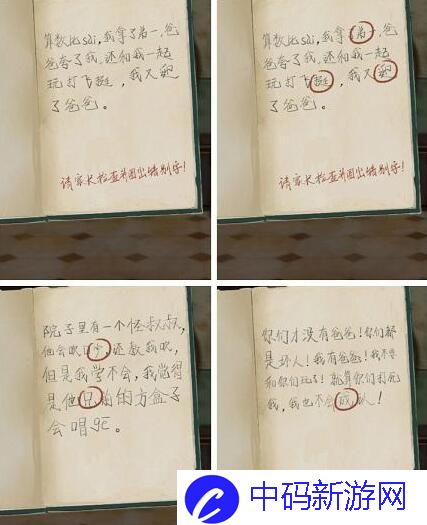 算数比sài,我拿了弟一,爸
爸夸了我,还和我一起
玩打飞挺,我又
了爸爸。
请家长检查并圈出错别字!
算数比sài,我拿了弟一,爸
爸夸了我,还和我一起
玩打飞挺,我又
了爸爸。
请家长检查并圈出错别字!
院子里有一个怪叔叔,
他会吹口今,还教我吹,
但是我学不会,我觉得
是他兄的方盒子
会唱gē。
你们才没有爸爸!你们都
是坏人!我有爸爸!我不要
和你们玩了!就算你们打死
我,我也不会成人!
中码新游网